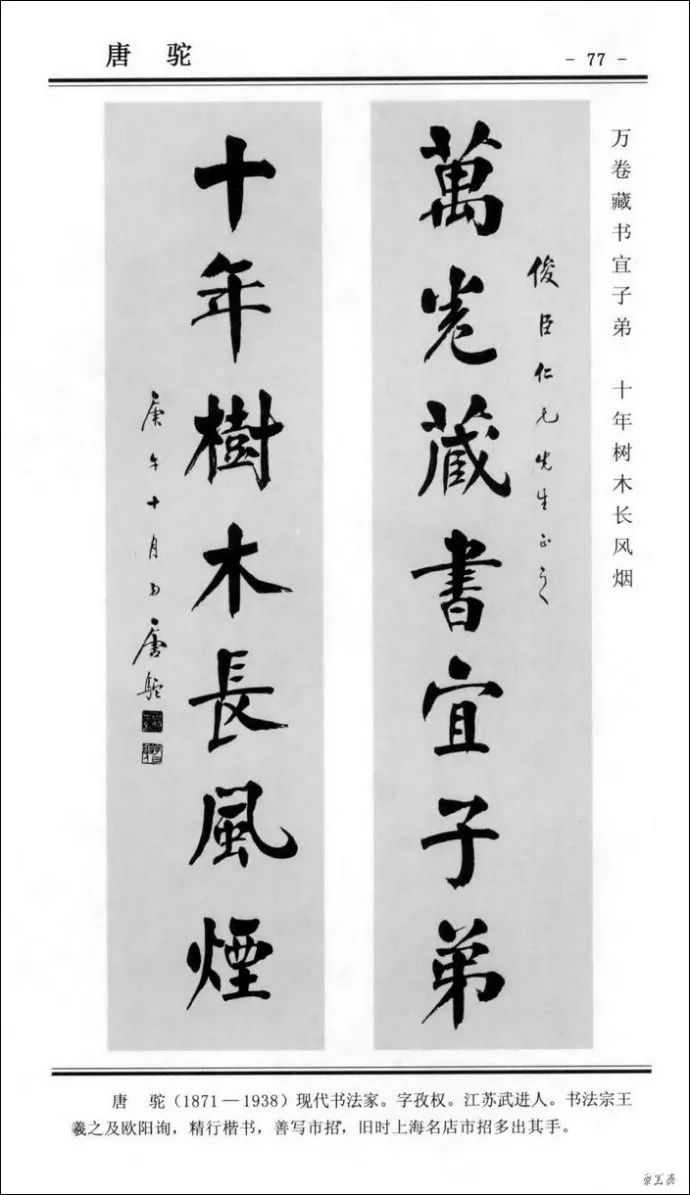 唐 驼
- 77 -
万卷藏书宜子弟 十年树木长风烟
俊臣仁兄先生正之
萬卷藏書宜子弟
十年樹木長風煙
庚午十月 唐駝
唐 驼(1871—1938)现代书法家。字孜权。江苏武进人。书法宗王
羲之及欧阳询,精行楷书,善写市招,旧时上海名店市招多出其手。